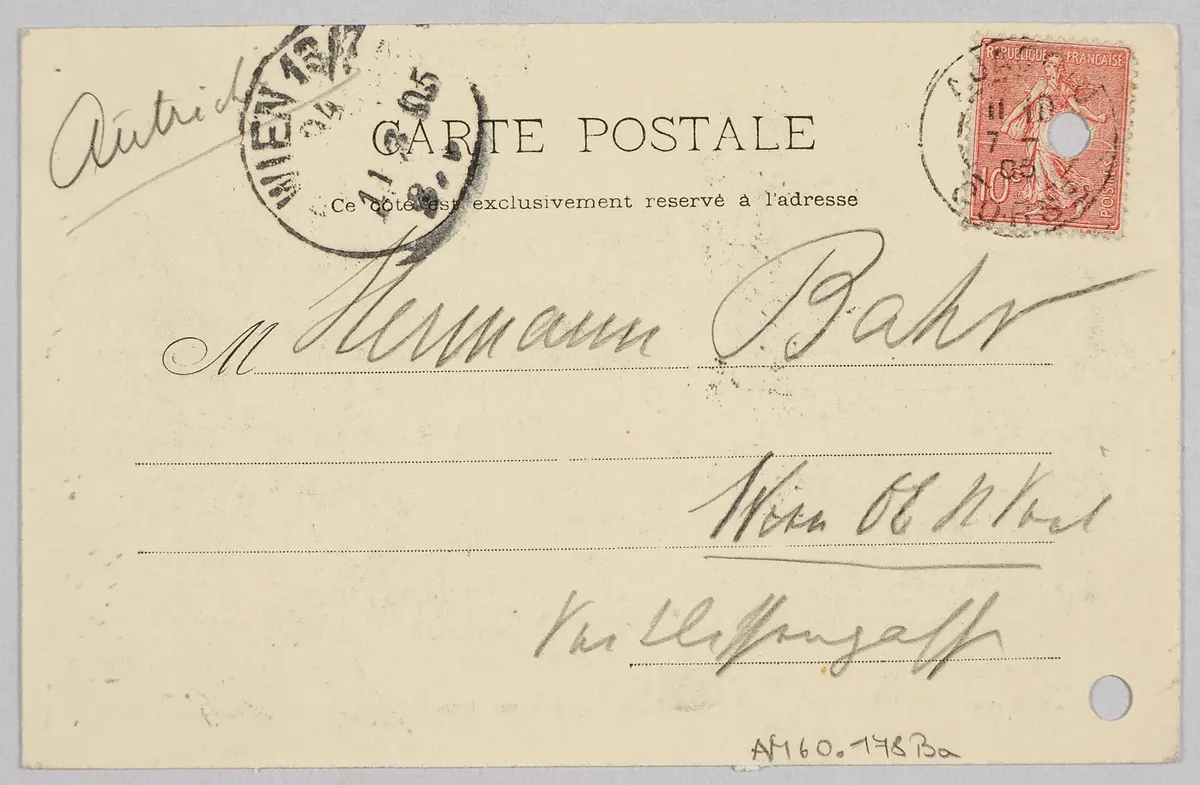 Autrich
WIEN 13/7
11 3 05
8.
CARTE POSTALE
Ce côté est exclusivement reservé à l'adresse
REPUBLIQUE FRANÇAISE
10
POSTES
AJACCIO
11 10
7 - 7
05
CORSE
M Hermann Bahr
Wien Ob St Veit
Veitlissengasse
AM60.178Ba